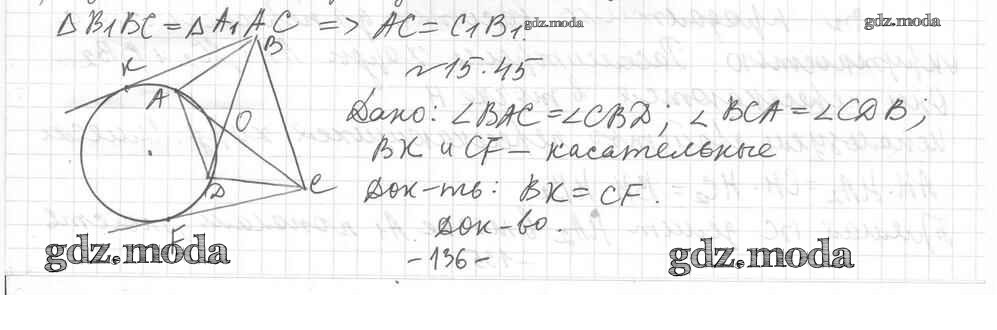 Δ B₁BC = Δ A₁AC => AC = C₁B₁.
gdz.moda
gdz.moda
№15.45
K
B
A
O
D
C
F
Дано: ∠BAC = ∠CBD; ∠BCA = ∠CDB;
BK и CF – касательные
Док-ть: BK = CF.
Док-во.
-136-
gdz.moda
gdz.moda